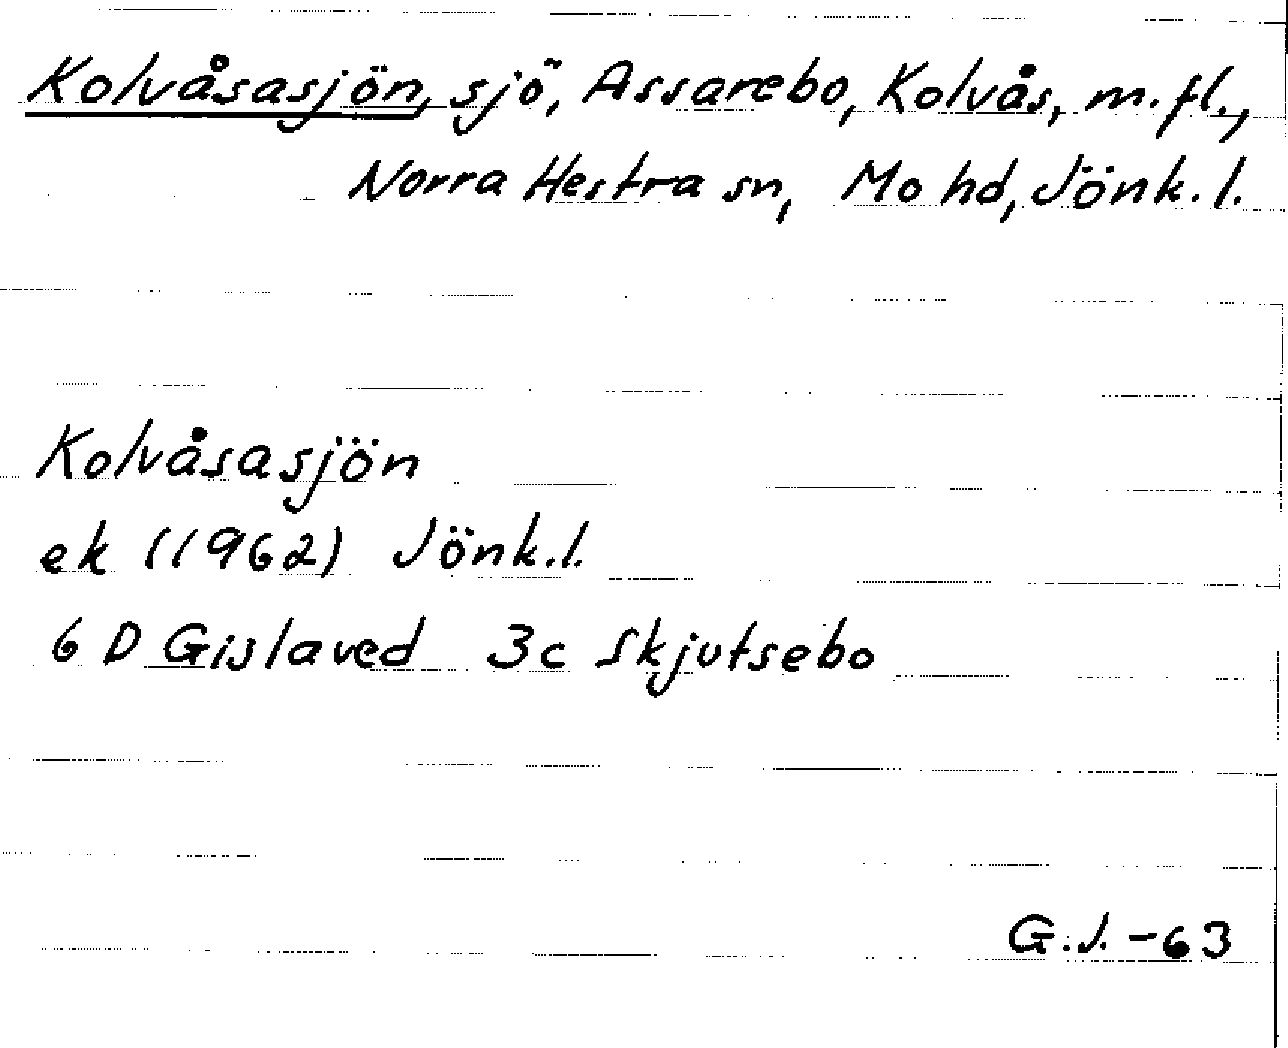 Kolvåsasjön, sjö, Assarebo, Kolvås, m.fl.,
Norra Hestra sn, Mo hd, Jönk.l.
Kolvåsasjön
ek (1962) Jönk.l.
6 D Gislaved 3c Skjutsebo
G.J. -63